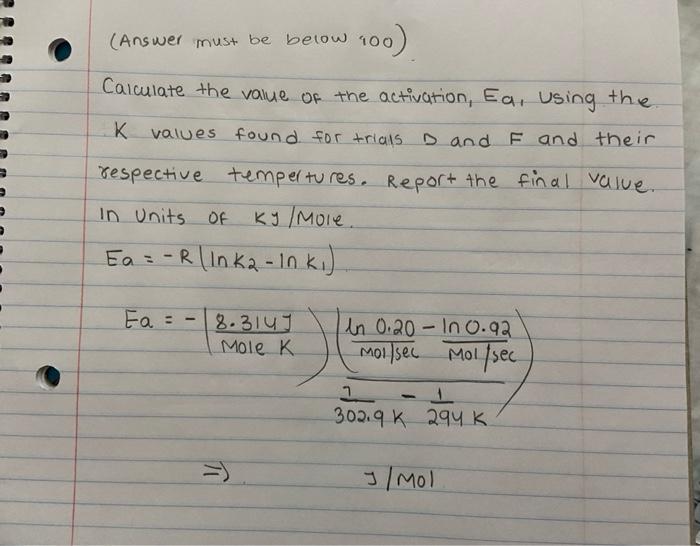 (Answer must be below 100)
Calculate the value of the activation, Ea, using the
K values found for trials D and F and their
respective tempertures. Report the final value.
In units of KJ/Mole.
Ea = -R(lnK2 - ln K1)
Ea = - (8.314J / Mole K) (ln 0.20 - ln 0.92
Mol/sec Mol/sec)
1 - 1
302.9 K 294 K
=> J/Mol